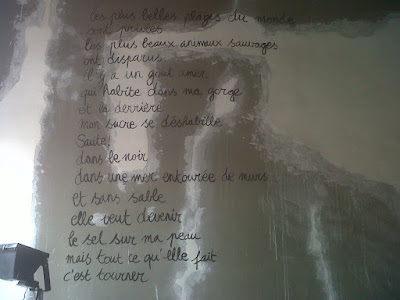 Les plus belles plages du monde
sont privées
les plus beaux animaux sauvages
ont disparus
il y a un goût amer
qui habite dans ma gorge
et la derrière
mon sucre se déshabille
Saute!
dans le noir
dans une mer entourée de murs
et sans sable
elle veut devenir
le sel sur ma peau
mais tout ce qu'elle fait
c'est tourner